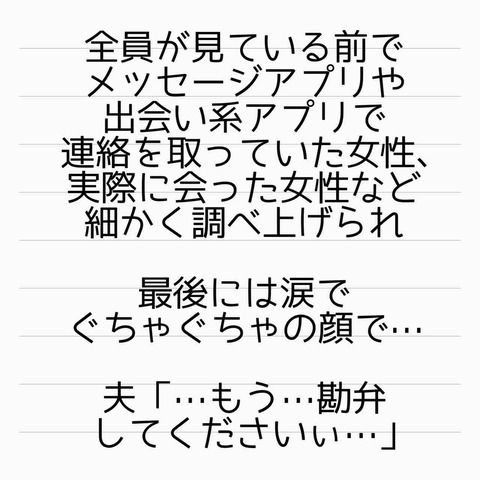 全員が見ている前で
メッセージアプリや
出会い系アプリで
連絡を取っていた女性、
実際に会った女性など
細かく調べ上げられ
最後には涙で
ぐちゃぐちゃの顔で…
夫「…もう…勘弁
してくださいぃ…」